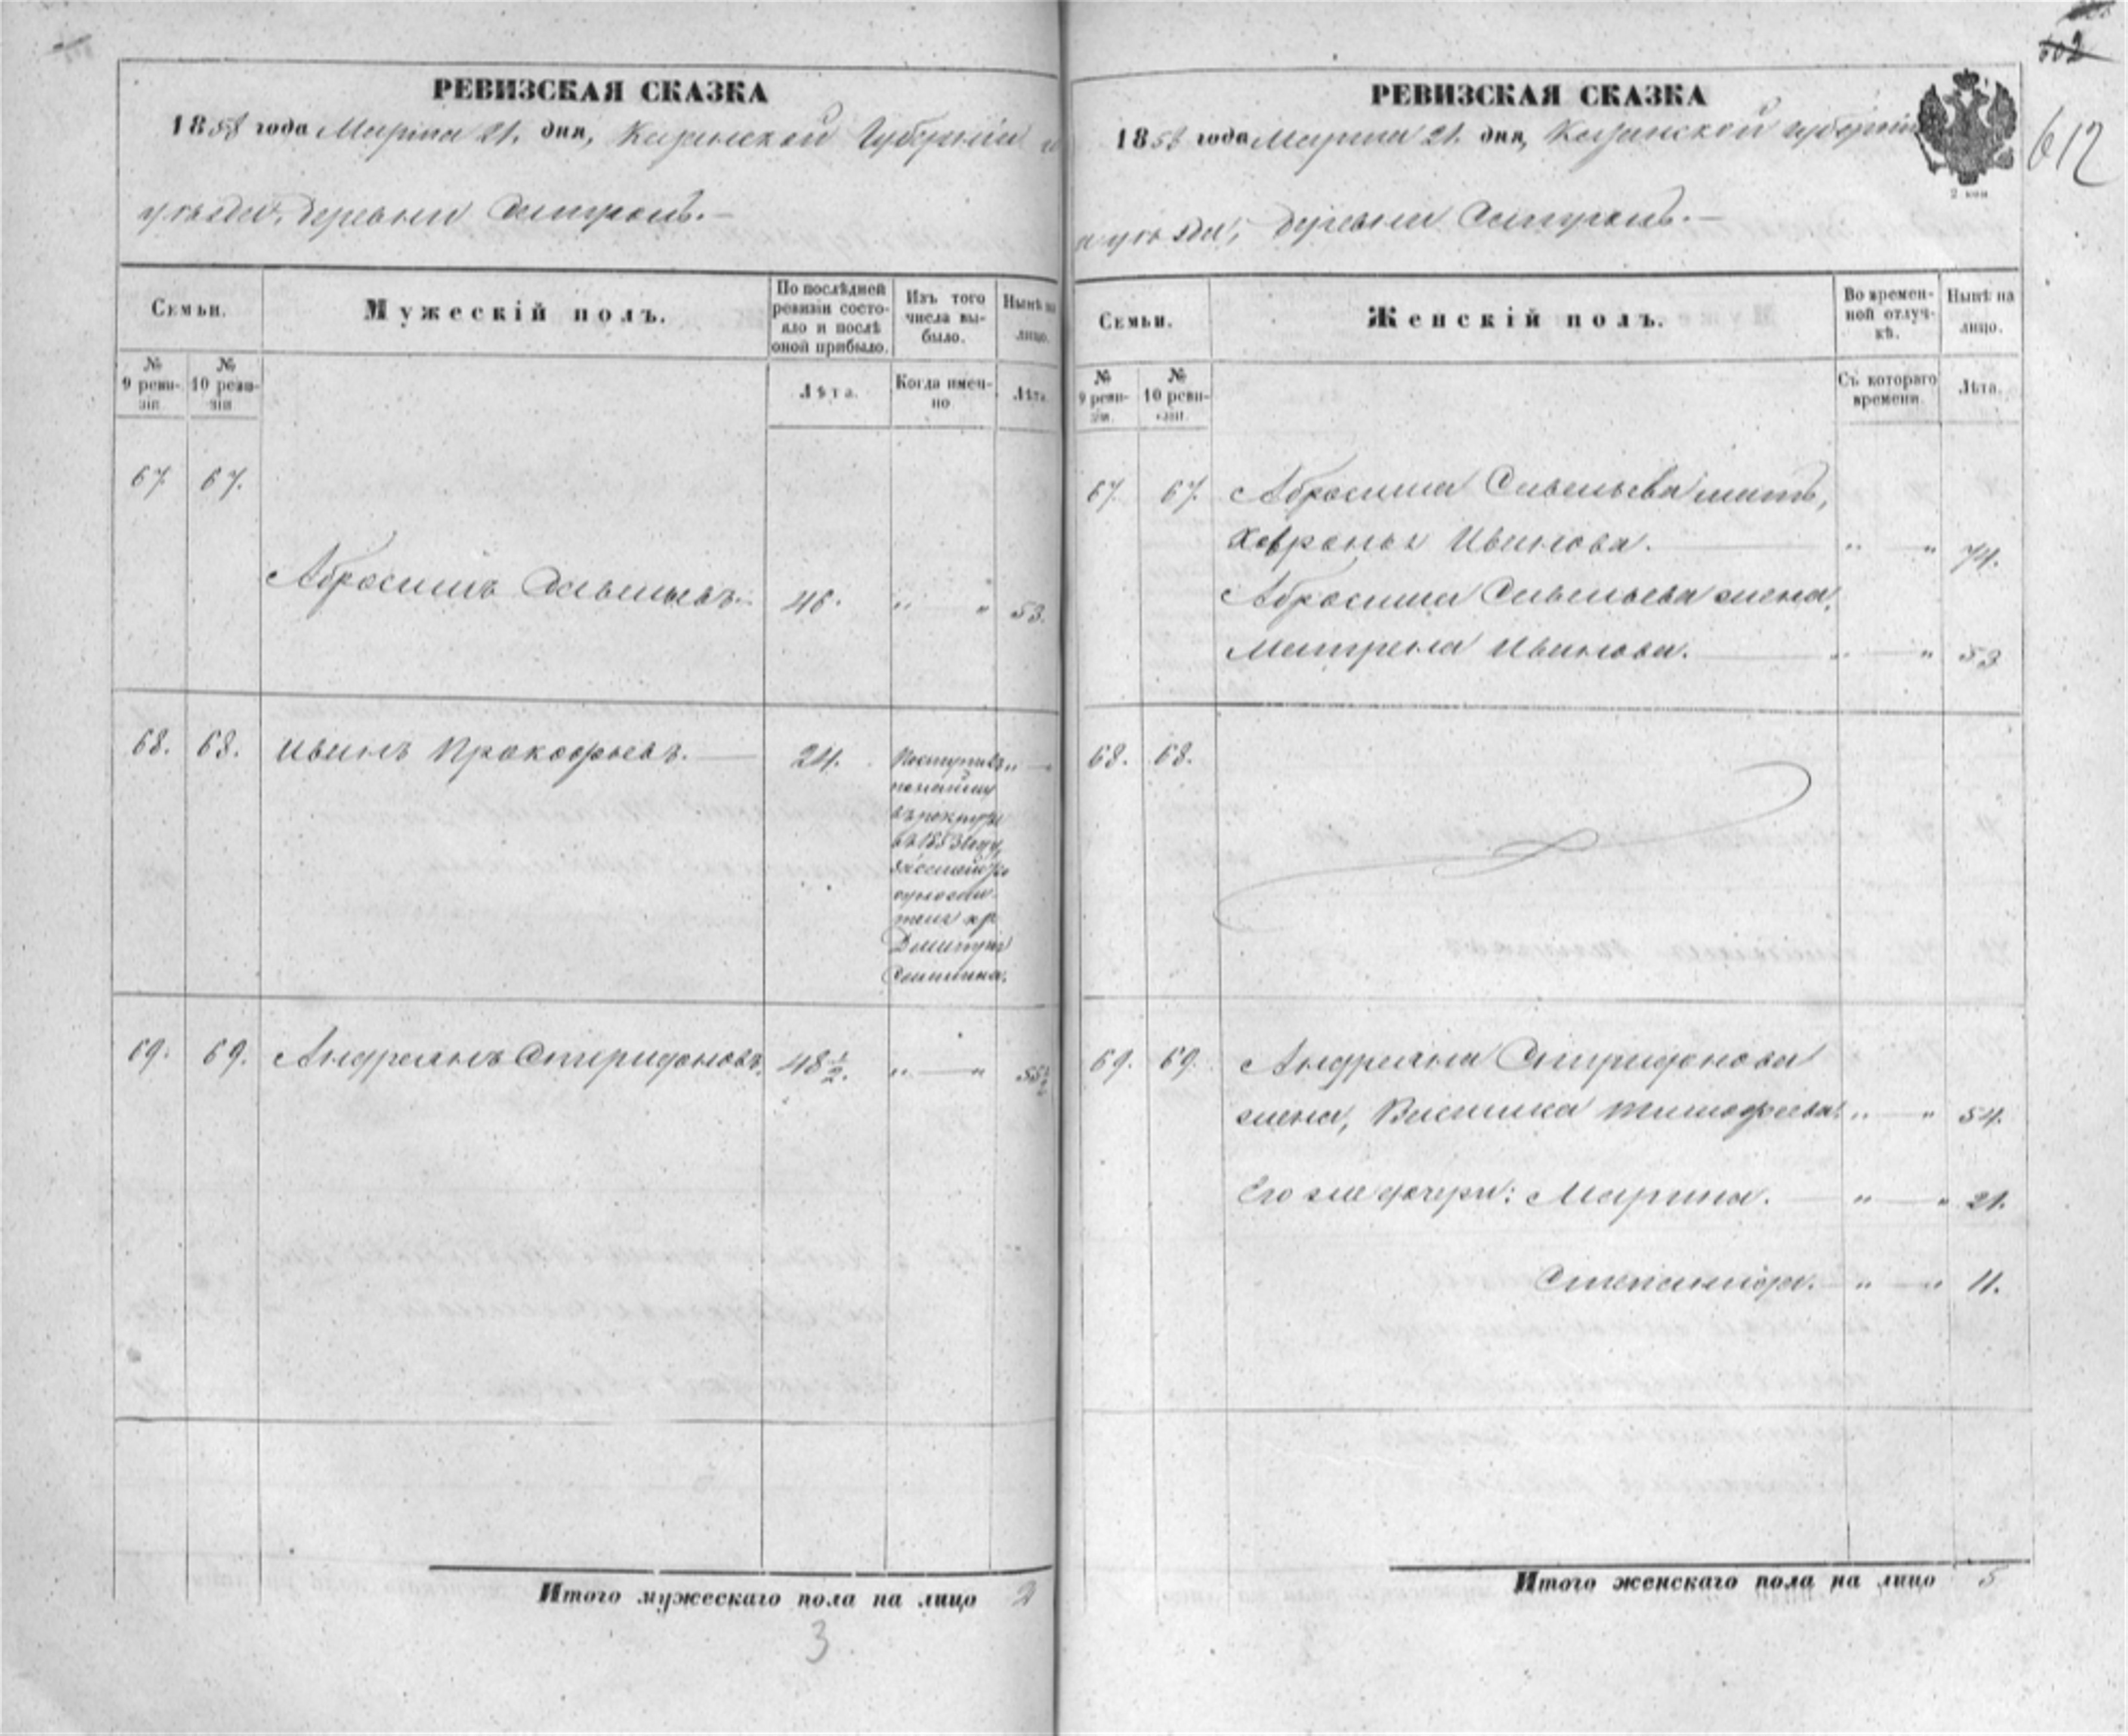 РЕВИЗСКАЯ СКАЗКА
1858 года Марта 21. дня, Казанской Губерніи и
уѣзда, деревни
Семьи.
Мужескій полъ.
По послѣдней ревизіи состояло и послѣ оной прибыло.
Изъ того числа выбыло.
Нынѣ на лицо.
№ 9 ревизіи
№ 10 ревизіи
Лѣта.
Когда именно
Лѣта.
67. 67.
Абросимъ Савельевъ. 46. „ „ 53.
68. 68. Иванъ Прокофьевъ. — 24. Поступилъ „ —
в 1853 году
Дмитрія
69. 69. Андреянъ Спиридоновъ. 48 1/2. „ — „ 55 1/2
Итого мужескаго пола на лицо 2
3
602
612
РЕВИЗСКАЯ СКАЗКА
2 коп
1858 года Марта 21. дня, Казанской губерніи
и уѣзда, деревни
Семьи.
Женскій полъ.
Во временной отлучкѣ.
Нынѣ на лицо.
№ 9 ревизіи.
№ 10 ревизіи.
Съ котораго времени.
Лѣта.
67. 67. Абросима Савельева мать,
Хавронья Иванова. — „ „ 74.
Абросима Савельева жена,
Матрена Иванова. — „ — „ 53
68. 68.
69. 69. Андреяна Спиридонова
жена, Тимофеева. „ — „ 54.
Его же дочери: Марина. — „ — „ 21.
Степанида. — „ — „ 11.
Итого женскаго пола на лицо 5